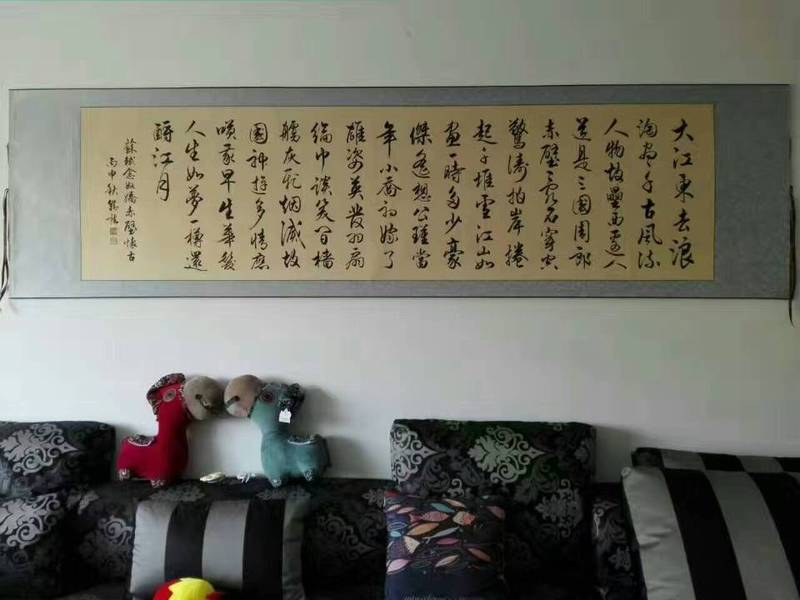 大江東去浪
淘盡千古風流
人物故壘西邊人
道是三國周郎
赤壁亂石穿空
驚濤拍岸捲
起千堆雪江山如
畫一時多少豪
傑遙想公瑾當
年小喬初嫁了
雄姿英發羽扇
綸巾談笑間檣
艣灰飛烟滅故
國神遊多情應
嘆我早生華髮
人生如夢一樽還
酹江月
蘇軾念奴嬌赤壁懷古
丙申秋